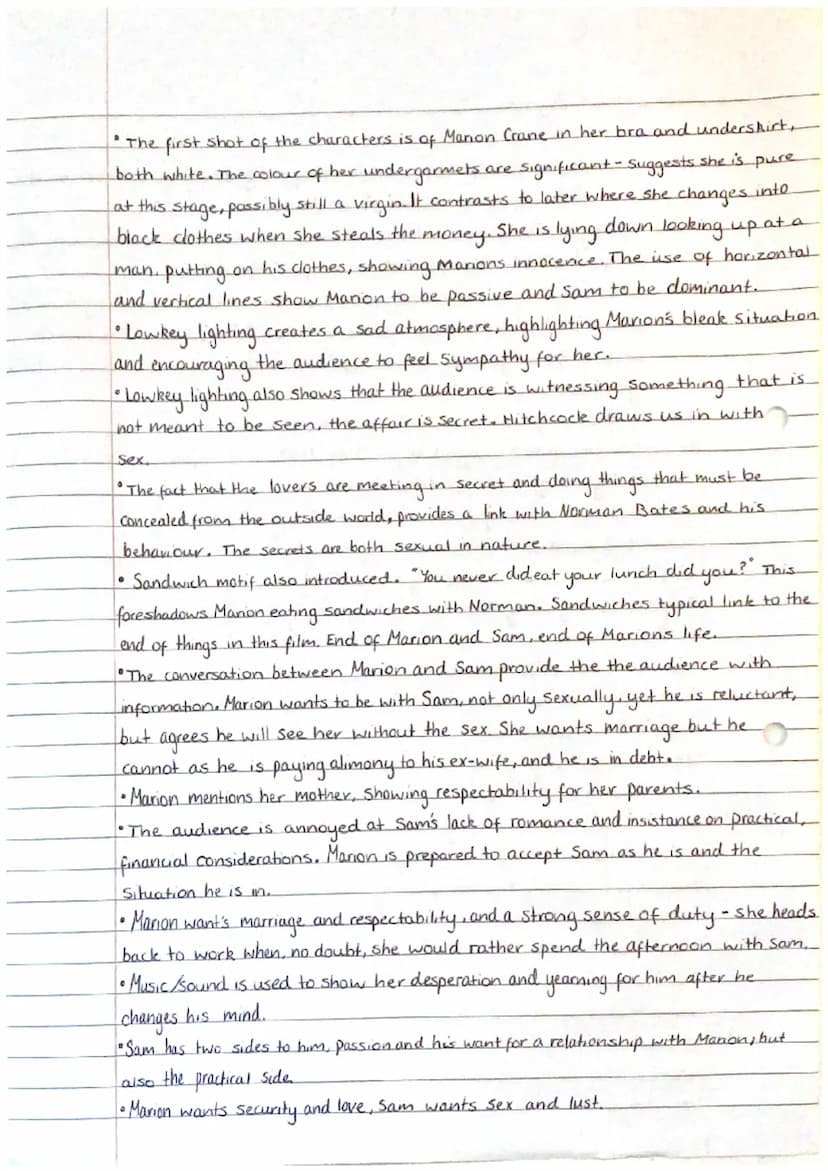 • The first shot of the characters is of Marion Crane in her bra and underskirt,
both white. The colour of her undergarmets are significant - suggests she is pure
at this stage, possibly still a virgin. It contrasts to later where she changes into
black clothes when she steals the money. She is lying down looking up at a
man, putting on his clothes, showing Marions innocence. The use of horizontal
and vertical lines show Marion to be passive and Sam to be dominant.
• Lowkey lighting creates a sad atmosphere, highlighting Marion's bleak situation
and encouraging the audience to feel sympathy for her.
• Lowkey lighting also shows that the audience is witnessing something that is
not meant to be seen, the affair is secret. Hitchcock draws us in with
sex.
• The fact that the lovers are meeting in secret and doing things that must be
concealed from the outside world, provides a link with Norman Bates and his
behaviour. The secrets are both sexual in nature.
• Sandwich motif also introduced. "You never did eat your lunch did you?" This
foreshadows Marion eating sandwiches with Norman. Sandwiches typical link to the
end of things in this film. End of Marion and Sam, end of Marions life.
• The conversation between Marion and Sam provide the the audience with
information. Marion wants to be with Sam, not only sexually, yet he is reluctant,
but agrees he will see her without the sex. She wants marriage but he
cannot as he is paying alimony to his ex-wife, and he is in debt.
• Marion mentions her mother, showing respectability for her parents.
• The audience is annoyed at Sam's lack of romance and insistance on practical,
financial considerations. Marion is prepared to accept Sam as he is and the
situation he is in.
• Marion want's marriage and respectability, and a strong sense of duty - she heads
back to work when, no doubt, she would rather spend the afternoon with Sam.
• Music/sound is used to show her desperation and yearning for him after he
changes his mind.
• Sam has two sides to him, passion and his want for a relationship with Marion, but
also the practical side.
• Marion wants security and love, Sam wants sex and lust.